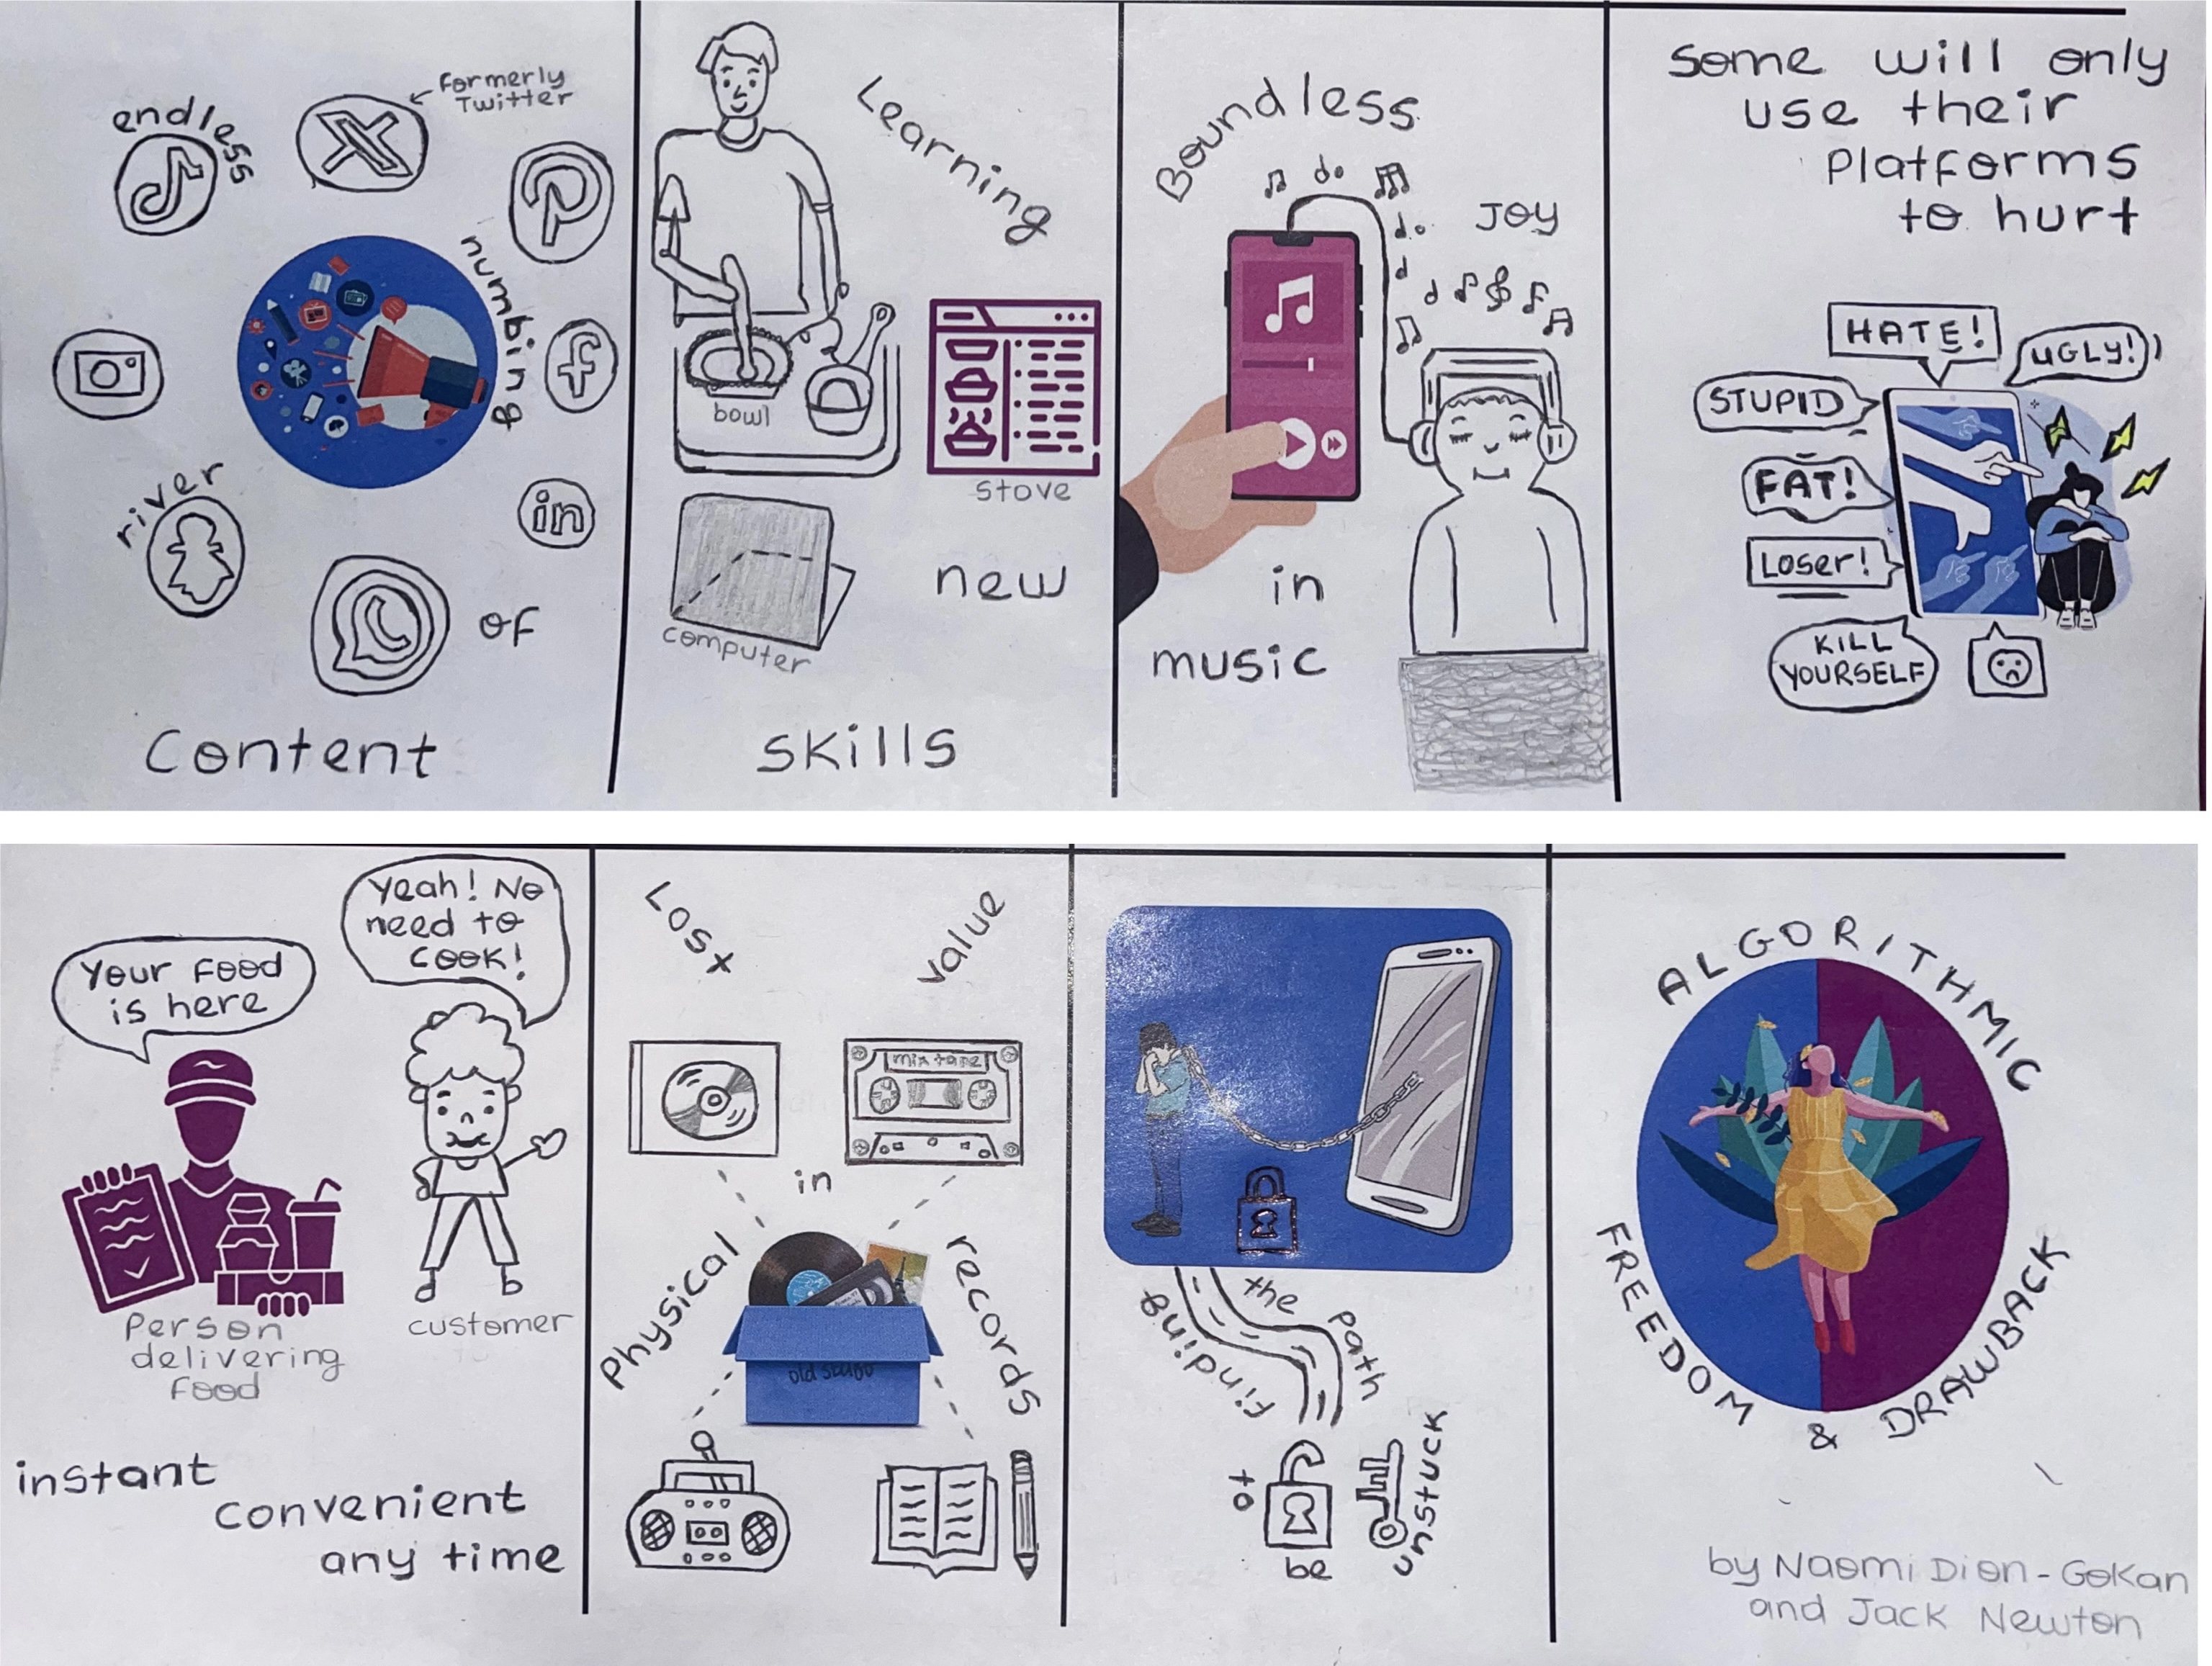 endless
Formerly
Twitter
numbing
river
of
Content
in
Learning
bowl
stove
computer
new
Skills
Boundless
Joy
in
music
Some will only
use their
platforms
to hurt
HATE!
UGLY!
STUPID
FAT!
Loser!
KILL
YOURSELF
Your Food
is here
Yeah! No
need to
cook!
Person
delivering
Food
customer
instant
convenient
any time
Lost
value
mix tape
in
Physical
records
old stuff
finding
the path
to
be
unstuck
ALGORITHMIC
FREEDOM & DRAWBACK
by Naomi Dion-Gokan
and Jack Newton